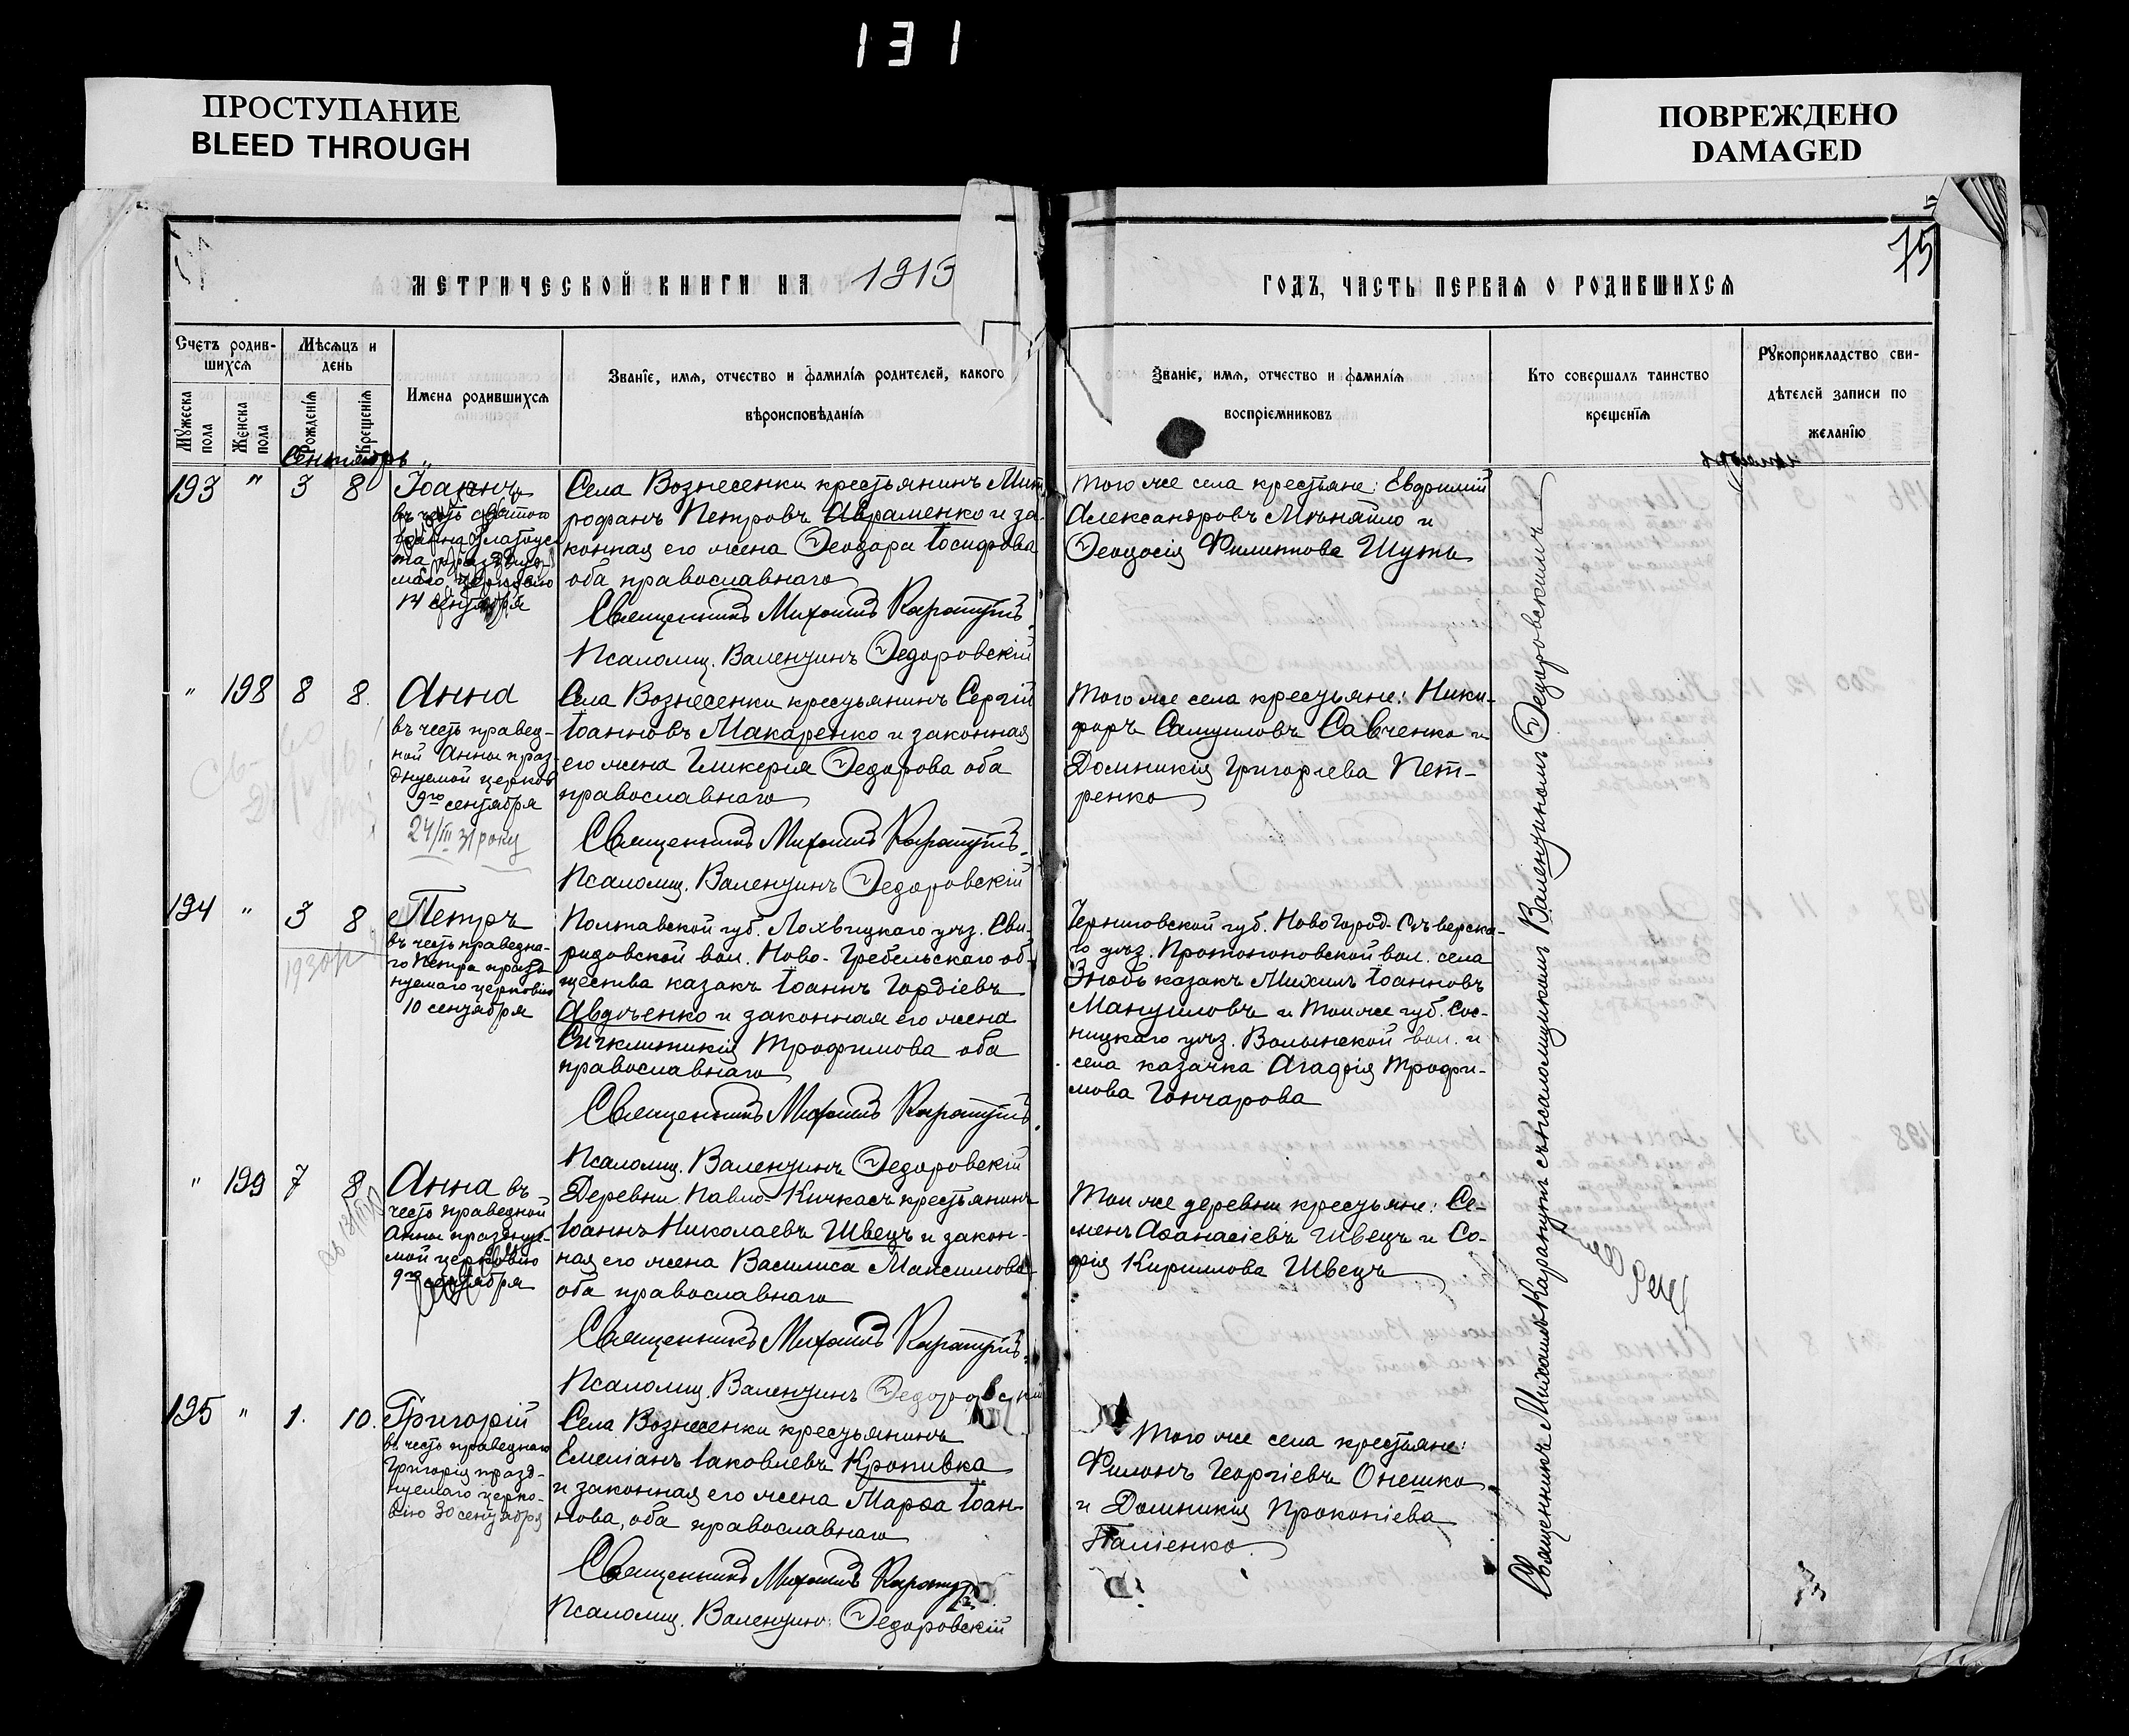 131
ПРОСТУПАНИЕ
BLEED THROUGH
ПОВРЕЖДЕНО
DAMAGED
75
МЕТРИЧЕСКОЙ КНИГИ НА 1913
ГОДЪ, ЧАСТЬ ПЕРВАЯ О РОДИВШИХСЯ
Счетъ родив-
шихся
Мѣсяцъ и
день
Мужеска
пола
Женска
пола
Рожденія
Крещенія
Имена родившихся
Званіе, имя, отчество и фамилія родителей, какого
вѣроисповѣданія
Званіе, имя, отчество и фамилія
воспріемниковъ
Кто совершалъ таинство
крещенія
Рукоприкладство сви-
дѣтелей записи по
желанію
Сентябрь
193 " 3 8
Іоаннъ
въ честь святого
Іоанна Златоус
та празднуе-
маго церковію
14 сентября
Села Вознесенки крестьянинъ Мит
рофанъ Петровъ Авраменко и за-
конная его жена Ѳеодора Іосифова
оба православнаго
Священникъ Михаилъ Карапутъ
Псаломщ. Валентинъ Ѳедоровскій
Того же села крестьяне: Евфимій
Александровъ и
Ѳеодосія Филиппова Шуть
" 198 8 8.
Анна
въ честь правед-
ной Анны праз-
днуемой церков
9го сентября
24/III 31 року
Села Вознесенки крестьянинъ Сергій
Іоанновъ Макаренко и законная
его жена Гликерія Ѳедорова оба
православнаго
Священникъ Михаилъ Карапутъ.
Псаломщ. Валентинъ Ѳедоровскій
Того же села крестьяне: Ники-
форъ Самуиловъ Савченко и
Домникія Григорьева Пет-
ренко
194 " 3 8
1930р
Петръ
въ честь праведна-
го Петра празд
нуемаго церковію
10 сентября
Полтавской губ. Лохвицкаго уѣз. Сви-
ридовской вол. Ново-Гребельскаго об-
щества казакъ Іоаннъ Гордіевъ
Авдѣенко и законная его жена
Синклитикія Трофимова оба
православнаго
Священникъ Михаилъ Карапутъ.
Псаломщ. Валентинъ Ѳедоровскій
Черниговской губ. Новгород-Сѣверска-
го уѣз. Протопоповской вол. села
Знобь казакъ Михаилъ Іоанновъ
Мануиловъ и той же губ. Сос-
ницкаго уѣз. Волынской вол. и
села казачка Агафія Трофи-
мова Гончарова
" 199 7 8
Анна въ
честь праведной
Анны празднуе-
мой церковію
9го сентября
Деревни Павло-Кичкасъ крестьянинъ
Іоаннъ Николаевъ Швець и закон-
ная его жена Василиса Максимова
оба православнаго
Священникъ Михаилъ Карапутъ.
Псаломщ. Валентинъ Ѳедоровскій
Той же деревни крестьяне: Се-
менъ Аѳанасіевъ Швець и Со-
фія Кириллова Швець
195 " 1. 10.
Григорій
въ честь праведнаго
Григорія празд-
нуемаго церко-
вію 30 сентября
Села Вознесенки крестьянинъ
Емеліанъ Іаковлевъ Кропивка
и законная его жена Марѳа Іоан-
нова, оба православнаго
Священникъ Михаилъ Карапутъ
Псаломщ. Валентинъ Ѳедоровскій
Того же села крестьяне:
Филонъ Георгіевъ Онешко
и Домникія Прокопіева
Паліенко
Священникъ Михаилъ Карапутъ съ псаломщикомъ Валентиномъ Ѳедоровскимъ